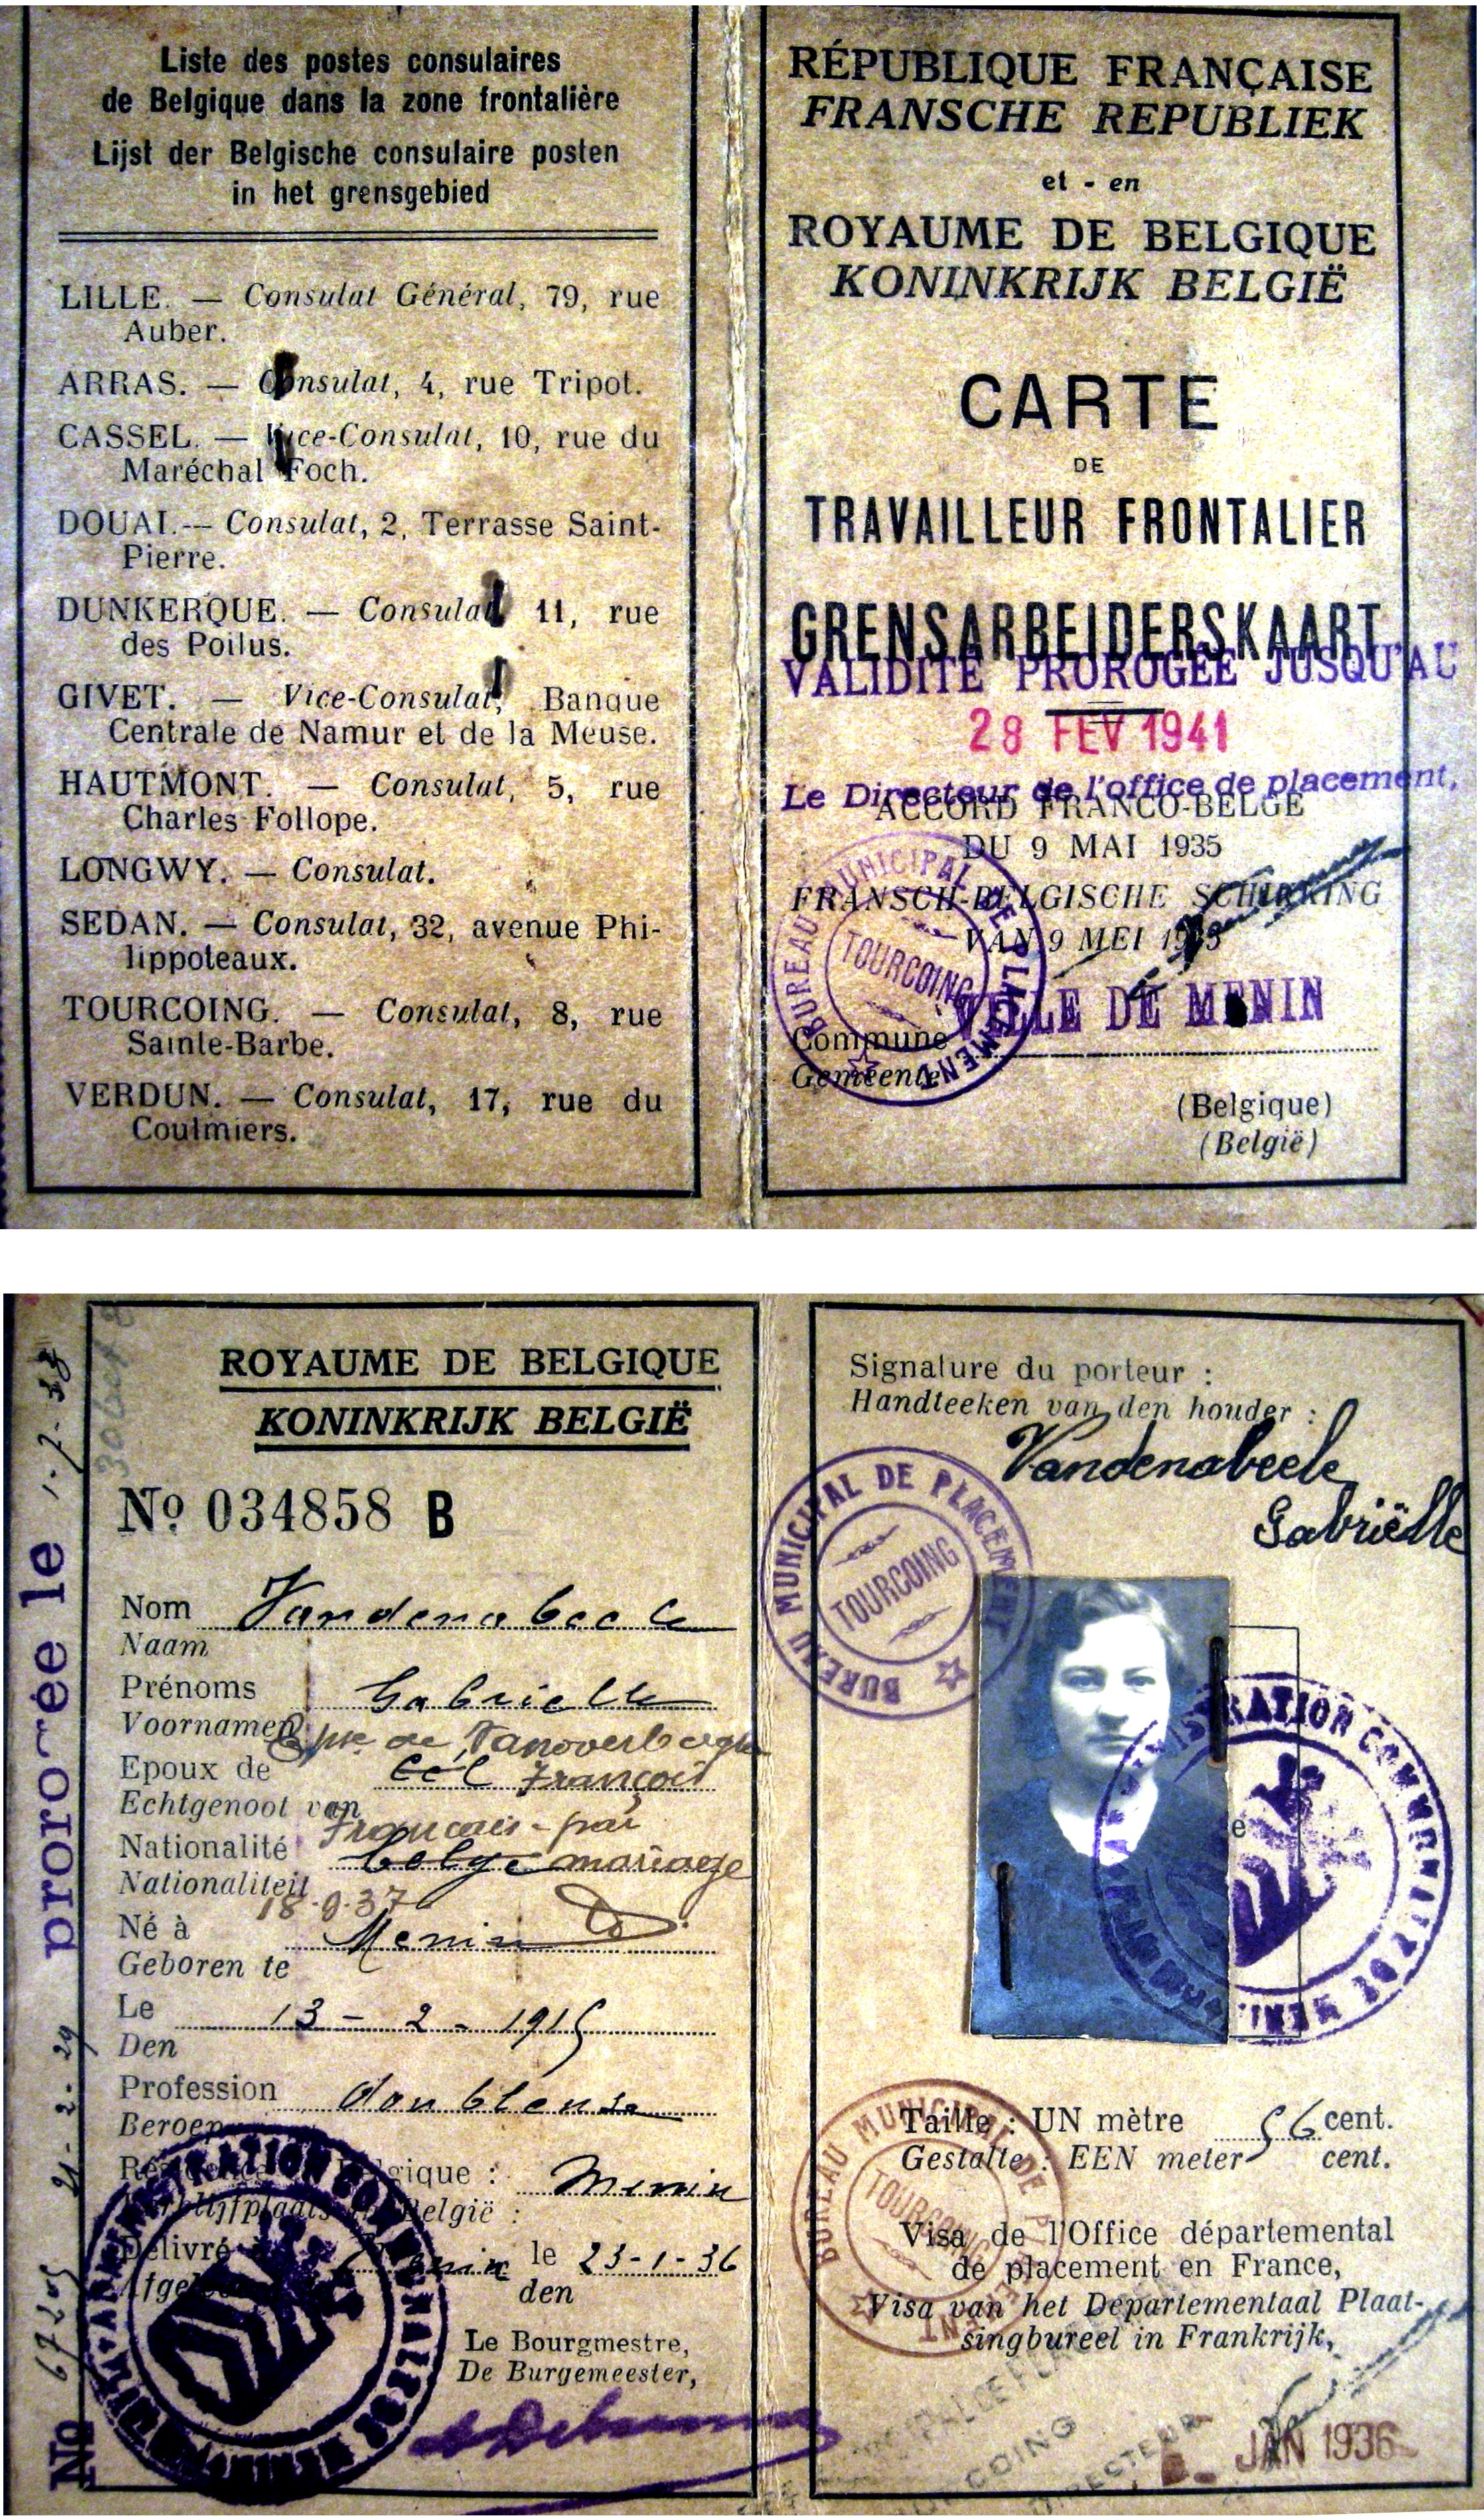 Liste des postes consulaires
de Belgique dans la zone frontalière
Lijst der Belgische consulaire posten
in het grensgebied
LILLE. — Consulat Général, 79, rue
Auber.
ARRAS. — Consulat, 4, rue Tripot.
CASSEL. — Vice-Consulat, 10, rue du
Maréchal Foch.
DOUAI.-- Consulat, 2, Terrasse Saint-
Pierre.
DUNKERQUE. — Consulat, 11, rue
des Poilus.
GIVET. — Vice-Consulat, Banque
Centrale de Namur et de la Meuse.
HAUTMONT. — Consulat, 5, rue
Charles Follope.
LONGWY. — Consulat.
SEDAN. — Consulat, 32, avenue Phi-
lippoteaux.
TOURCOING. — Consulat, 8, rue
Sainte-Barbe.
VERDUN. — Consulat, 17, rue du
Coulmiers.
RÉPUBLIQUE FRANÇAISE
FRANSCHE REPUBLIEK
et - en
ROYAUME DE BELGIQUE
KONINKRIJK BELGIË
CARTE
DE
TRAVAILLEUR FRONTALIER
GRENSARBEIDERSKAART
VALIDITÉ PROROGÉE JUSQU'AU
28 FEV 1941
Le Directeur de l'office de placement,
ACCORD FRANCO-BELGE
DU 9 MAI 1935
FRANSCH-BELGISCHE SCHIKKING
VAN 9 MEI 1935
BUREAU MUNICIPAL DE PLACEMENT
TOURCOING
VILLE DE MENIN
Commune
Gemeente
(Belgique)
(België)
prorogée le 1-7-38
21-2-39
No
ROYAUME DE BELGIQUE
KONINKRIJK BELGIË
No 034858 B
Nom Vandenabeele
Naam
Prénoms Gabrielle
Voornamen
Epse de Vanoverberghe
Epoux de Cél François
Echtgenoot van
Française par
Nationalité belge mariage
Nationaliteit
18-9-37
Né à Menin
Geboren te
Le 13 - 2 - 1915
Den
Profession doubleuse
Beroep
Résidence en Belgique : Menin
Verblijfplaats in België :
Délivré à Menin le 23-1-36
Afgeleverd den
Le Bourgmestre,
De Burgemeester,
Signature du porteur :
Handteeken van den houder :
Vandenabeele
Gabriëlle
BUREAU MUNICIPAL DE PLACEMENT
TOURCOING
ADMINISTRATION COMMUNALE DE MENIN
Taille : UN mètre 56 cent.
Gestalte : EEN meter cent.
BUREAU MUNICIPAL DE PLACEMENT
TOURCOING
Visa de l'Office départemental
de placement en France,
Visa van het Departementaal Plaat-
singbureel in Frankrijk,
JAN 1936